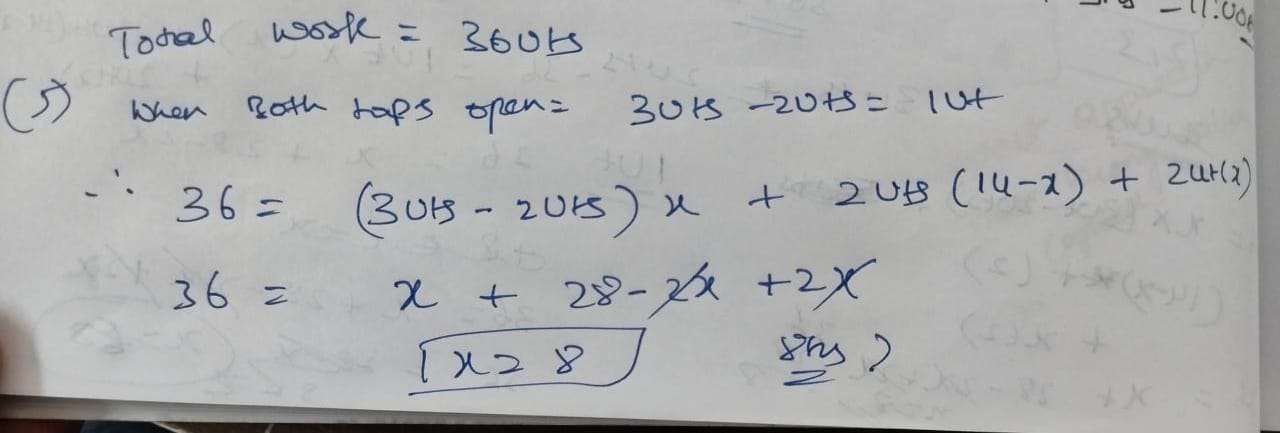 -11:00
Total work = 36 Uts
(5) When Both taps open = 3Uts - 2Uts = 1Ut
∴ 36 = (3Uts - 2Uts) x + 2Uts (14-x) + 2Ut(x)
36 = x + 28 - 2x + 2x
x = 8 8hrs ?